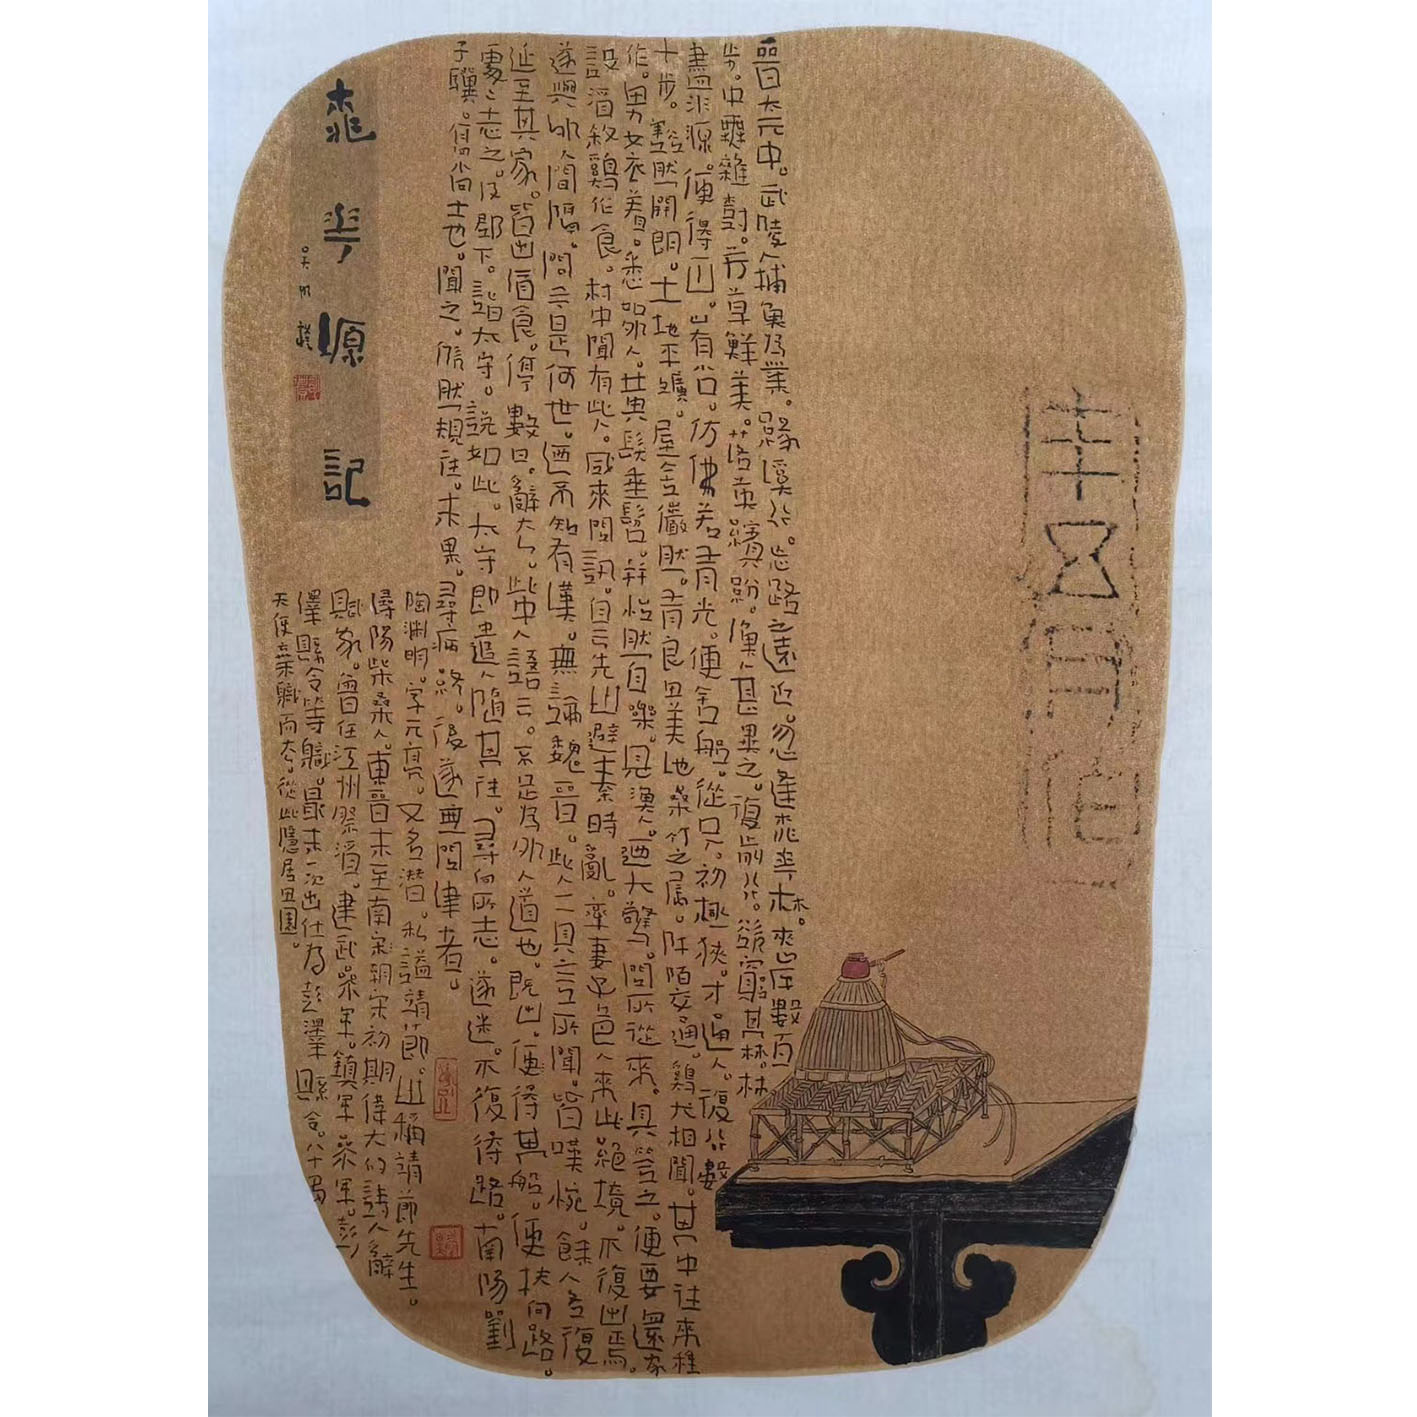 晉太元中。武陵人捕魚為業。緣溪行。忘路之遠近。忽逢桃華林。夾岸數百
步。中無雜樹。芳草鮮美。落英繽紛。漁人甚異之。復前行。欲窮其林。林
盡水源。便得一山。山有小口。仿佛若有光。便舍船。從口入。初極狹。才通人。復行數
十步。豁然開朗。土地平曠。屋舍儼然。有良田美池桑竹之屬。阡陌交通。雞犬相聞。其中往來種
作。男女衣著。悉如外人。黃髮垂髫。并怡然自樂。見漁人。迺大驚。問所從來。具答之。便要還家
設酒殺雞作食。村中聞有此人。咸來問訊。自云先世避秦時亂。率妻子邑人來此絕境。不復出焉。
遂與外人間隔。問今是何世。迺不知有漢。無論魏晉。此人一一具言所聞。皆嘆惋。餘人各復
延至其家。皆出酒食。停數日。辭去。此中人語云。不足為外人道也。既出。便得其船。便扶向路。
處々志之。及郡下。詣太守。說如此。太守即遣人隨其往。尋向所志。遂迷。不復得路。南陽劉
子驥。高尚士也。聞之。欣然規往。未果。尋病終。後遂無問津者。
陶淵明。字元亮。又名潛。私謚靖節。世稱靖節先生。
潯陽柴桑人。東晉末至南宋朝宋初期偉大的詩人辭
賦家。曾任江州祭酒。建武參軍。鎮軍參軍。彭
澤縣令等職。最末一次出仕為彭澤縣令。八十多
天便棄職而去。從此隱居田園。
桃華源記